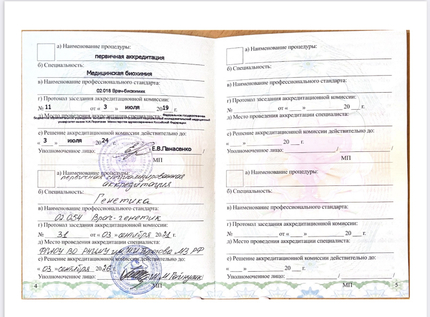 а) Наименование процедуры:
первичная аккредитация
б) Специальность:
Медицинская биохимия
в) Наименование профессионального стандарта:
02.018 Врач-биохимик
г) Протокол заседания аккредитационной комиссии:
№ 11 от « 3 » июля 2019 г.
д) Место проведения аккредитации специалиста:
е) Решение аккредитационной комиссии действительно до:
« 3 » июля 2024
Уполномоченное лицо: Е.В.Панасенко
МП
а) Наименование процедуры:
первичная специализированная
аккредитация
б) Специальность:
Генетика
в) Наименование профессионального стандарта:
02.054 Врач-генетик
г) Протокол заседания аккредитационной комиссии:
№ 31 от « 03 » октября 2021 г.
д) Место проведения аккредитации специалиста:
МЗ РФ
е) Решение аккредитационной комиссии действительно до:
« 03 » октября 2026
Уполномоченное лицо:
МП
4
а) Наименование процедуры:
б) Специальность:
в) Наименование профессионального стандарта:
г) Протокол заседания аккредитационной комиссии:
№ от « » 20 г.
д) Место проведения аккредитации специалиста:
е) Решение аккредитационной комиссии действительно до:
« » 20 г.
Уполномоченное лицо: /
МП
а) Наименование процедуры:
б) Специальность:
в) Наименование профессионального стандарта:
г) Протокол заседания аккредитационной комиссии:
№ от « » 20 г.
д) Место проведения аккредитации специалиста:
е) Решение аккредитационной комиссии действительно до:
« » 20 г.
Уполномоченное лицо: /
МП
5